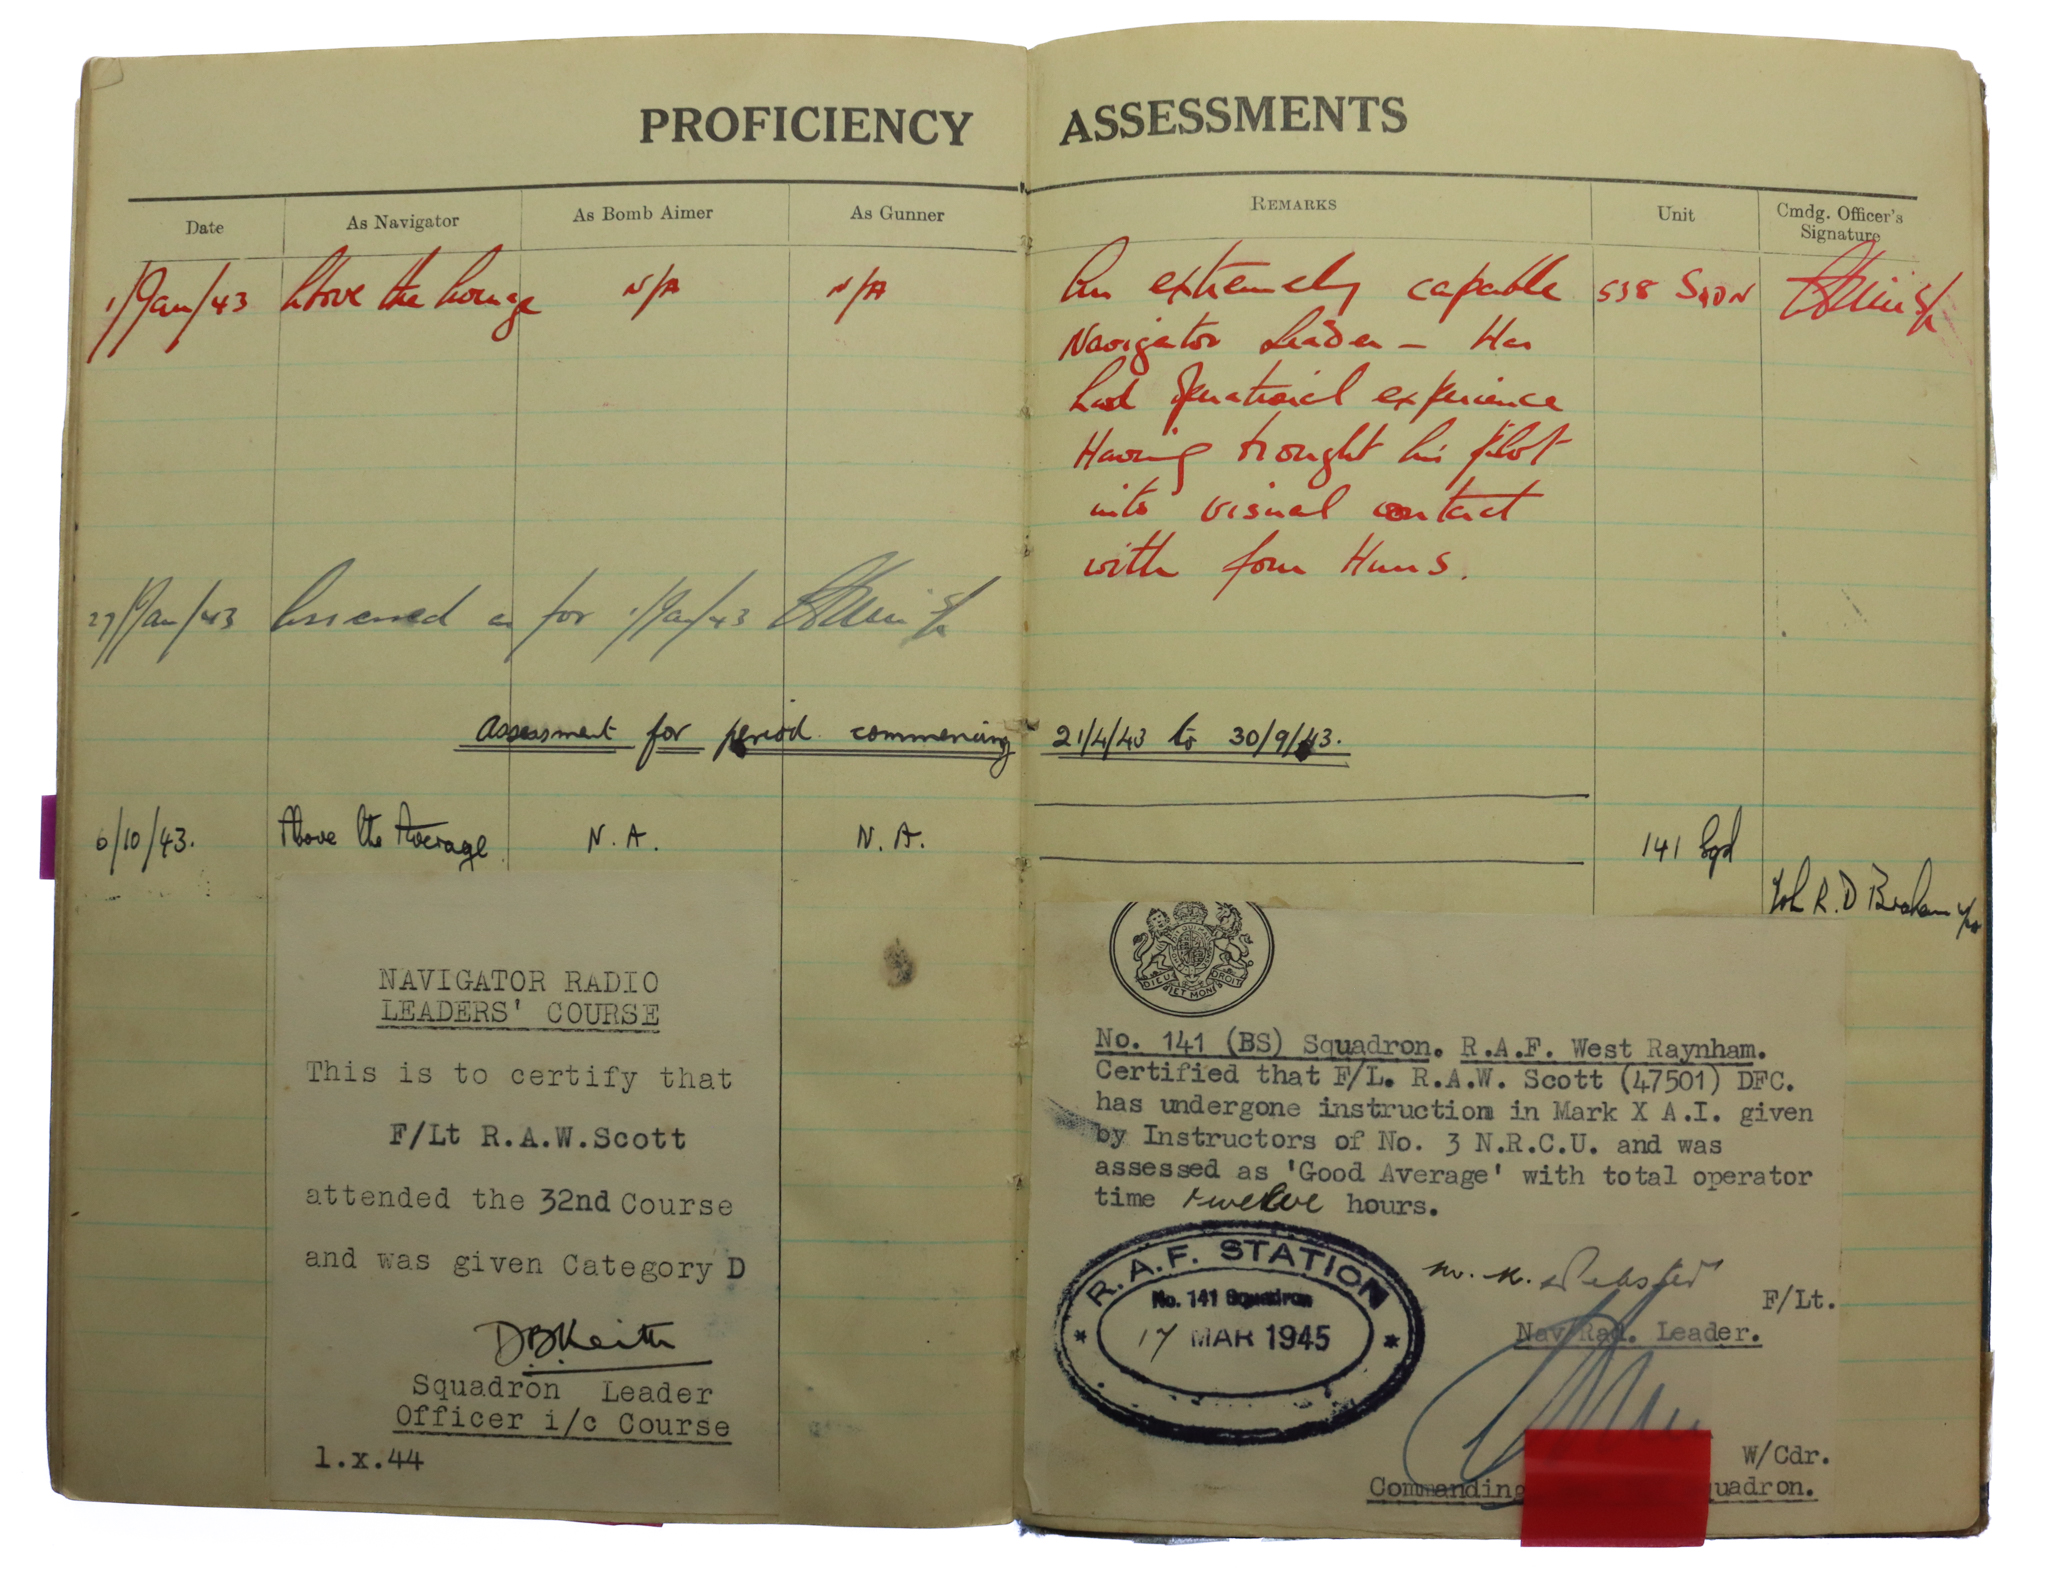 PROFICIENCY ASSESSMENTS
Date As Navigator As Bomb Aimer As Gunner REMARKS Unit Cmdg. Officer's
Signature
1/Jan/43 Above the Average N/A N/A An extremely capable 538 SQDN
Navigator Leader – Has
had operational experience
Having brought his pilot
into visual contact
with four Huns.
27/Jan/43 Assessed as for 1/Jan/43
Assessment for period commencing 21/4/43 to 30/9/43.
6/10/43. Above the Average N.A. N.A. 141 Sqd
R.D Braham
NAVIGATOR RADIO
LEADERS' COURSE
This is to certify that
F/Lt R.A.W.Scott
attended the 32nd Course
and was given Category D
D.B.Keith
Squadron Leader
Officer i/c Course
1.x.44
DIEU ET MON DROIT
No. 141 (BS) Squadron. R.A.F. West Raynham.
Certified that F/L. R.A.W. Scott (47501) DFC.
has undergone instruction in Mark X A.I. given
by Instructors of No. 3 N.R.C.U. and was
assessed as 'Good Average' with total operator
time twelve hours.
R.A.F. STATION
No. 141 Squadron
17 MAR 1945
Webster
F/Lt.
Nav/Rad. Leader.
W/Cdr.
Commanding uadron.